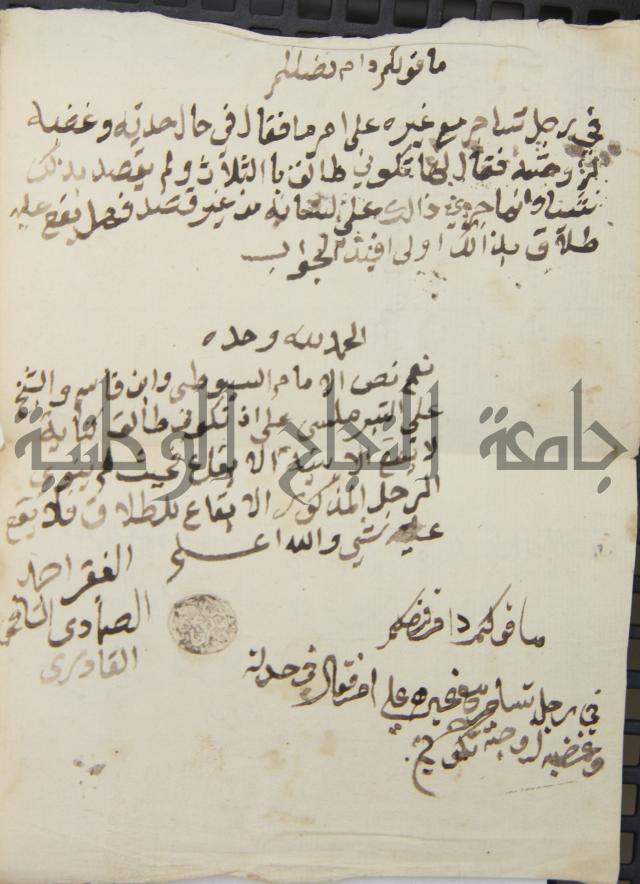 ما قولكم دام فضلكم
في رجل تشاجر مع غيره على امر ما فقال في حال حدته وغضبه
لزوجته فقال لها تكوني طالق بالثلاث ولم يقصد بذلك
شياء وانما جرى ذالك على لسانه من غير قصد فهل يقع عليه
طلاق بذالك اولى افيدوا الجواب
الحمد لله وحده
نعم نص الامام السيوطي وابن قاسم والشيخ
على الشبرملسي على ان تكوني طالق كناية
لا يقع الا بنية الايقاع فحيث لم ينوي
الرجل المذكور الايقاع للطلاق فلا يقع
عليه شي والله اعلم
الفقير احمد
الصمادي الشافعي
القادري
ما قولكم دام فضلكم
في رجل تشاجر مع غيره على امر فقال في حدته
وغضبه لزوجته تكوني
جامعة النجاح الوطنية